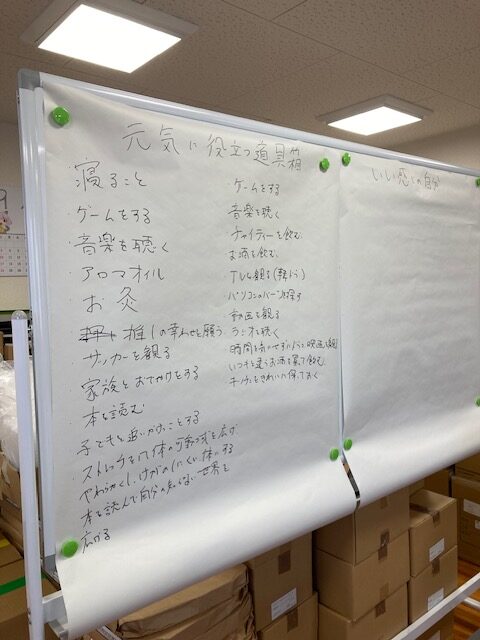 元気に役立つ道具箱
寝ること
・ゲームをする
・音楽を聴く
アロマオイル
お灸
推しの幸わせを願う
サッカーを観る
家族とおでかけをする
本を読む
子どもと追いかけっこをする
ストレッチをして体の可動域を広げ
やわらかくし、けがのしにくい体にする
本を読んで自分の知らない世界を
広げる
・ゲームをする
音楽を聴く
チャイティーを飲む
お酒を飲む
・TVを観る(韓ドラ)
・パソコンのパーツを探す
・動画を観る
ラジオを聴く
時間を気にせずに 映画を観る
いつもと違うお酒を買って飲む
キッチンをきれいに保っておく
いい感じの自分